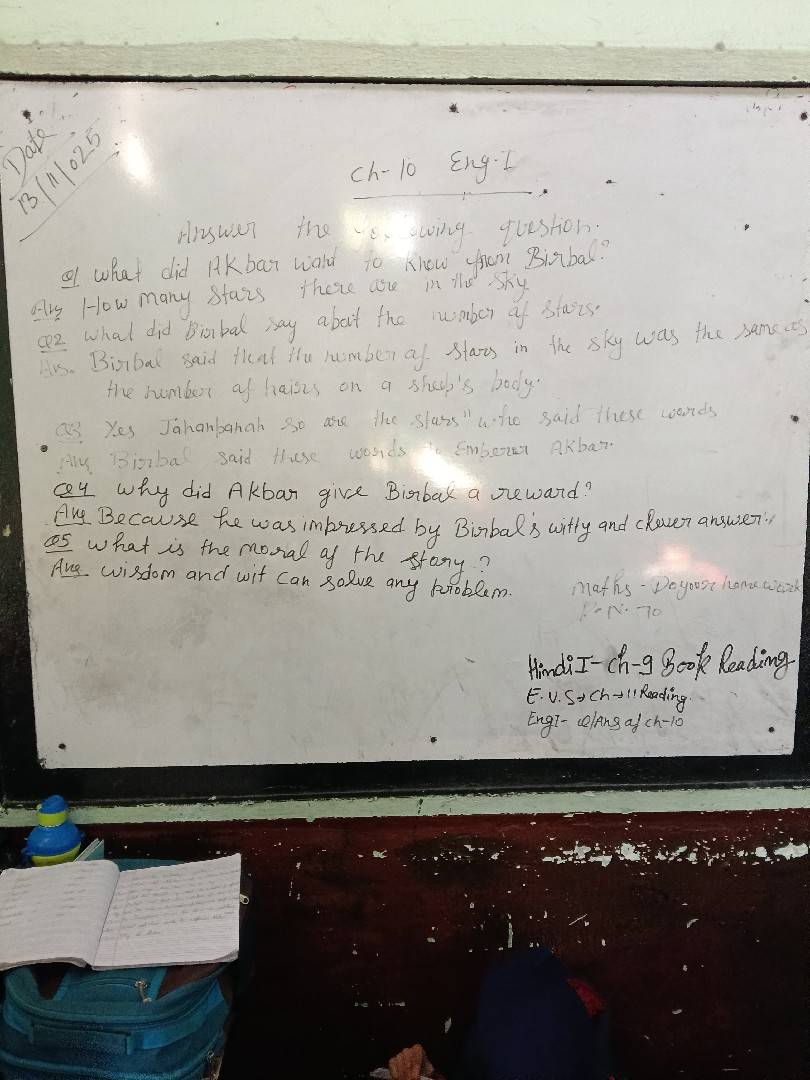 Date
13/11/025
Ch-10 Eng-I
Answer the following question.
Q1 what did AKbar want to know from Birbal?
Ans How many stars there are in the sky
Q2 what did Birbal say about the number of stars.
Ans. Birbal said that the number of stars in the sky was the same as
the number of hairs on a sheeb's body.
Q3 Yes Jahanpanah so are the stars" who said these words
Ans Birbal said these words to Emberer AKbar.
Q4 why did Akbar give Birbal a reward?
Ans Because he was impressed by Birbal's witty and clever answer.
Q5 what is the moral of the story?
Ans wisdom and wit can solve any problem.
Maths - Do your home work
P.N. 70
Hindi I - Ch-9 Book Reading
E.V.S → Ch → 11 Reading.
Eng I - Q/Ans of ch-10